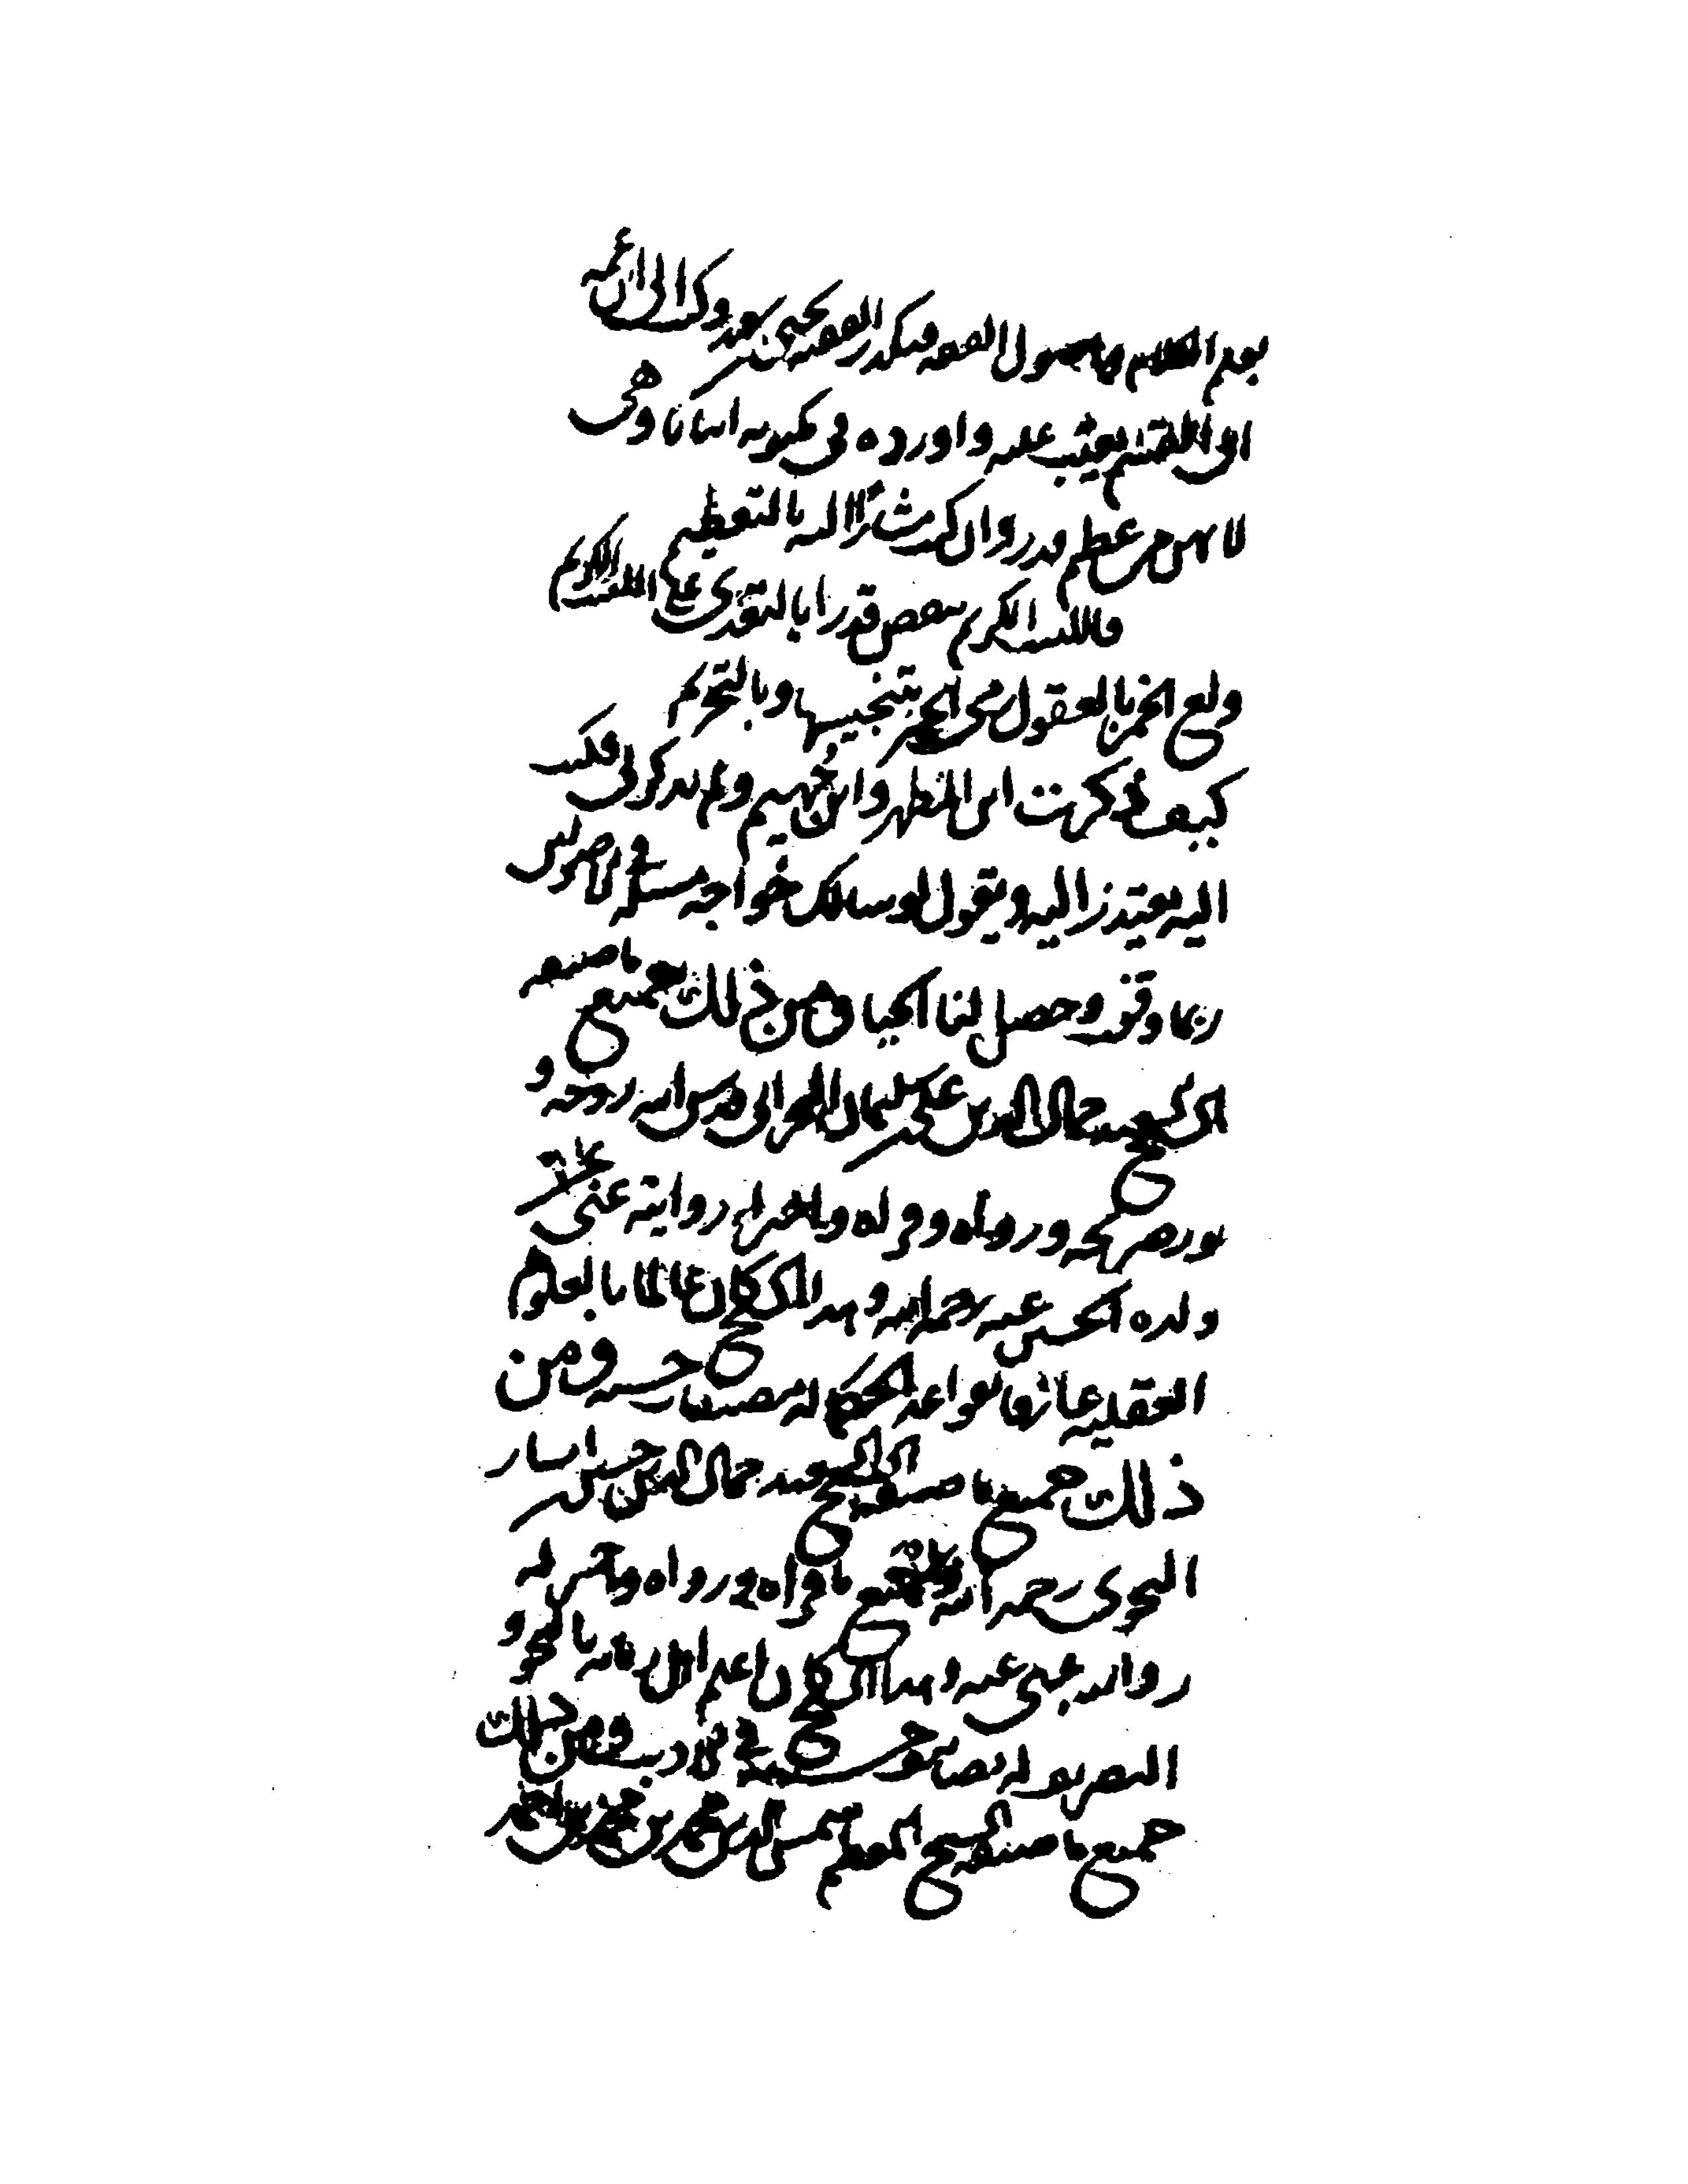 بعلم الكلام واصول الفقه فتكدر الفقيه يحيى بن سعيد وكتب الى ابن عمه
ابي القسم يعتب عليه واورد في مكتوبه ابياتا وهي
لا تهن من عظيم قدر وان كنت مشارا اليه بالتعظيم
فاللبيب الكريم ينقص قدرا بالتعدي على اللبيب الكريم
ولع الخمر بالعقول رمى الخمر بتنجيسها وبالتحريم
كيف ذكرت ابن المطهر وابن جهيم ولم تذكرني فكتب
اليه يعتذر اليه ويقول لو سالك خواجه مسئلة في الاصولين
ربما وقفت وحصل لنا الحياء ومن ذلك جميع ما صنفه
الشيخ السعيد جمال الدين علي بن سليمان البحراني قدس الله روحه و
نور ضريحه ورواه وقراه واجيز له روايته عني عن
ولده الحسين عنه رحمه الله وهذا الشيخ كان عالما بالعلوم
العقلية عارفا بقواعد الحكماء له مصنفات حسنة ومن
ذلك جميع ما صنفه الشيخ السعيد جمال الدين حسين بن اياز
النحوي رحمه الله وجميع ما قراه ورواه واجيز له
روايته عني عنه وهذا الشيخ كان اعلم اهل زمانه بالنحو و
التصريف له تصانيف حسنة في الادب ومن ذلك
جميع ما صنفه الشيخ المعظم شمس الدين محمد بن محمد بن احمد